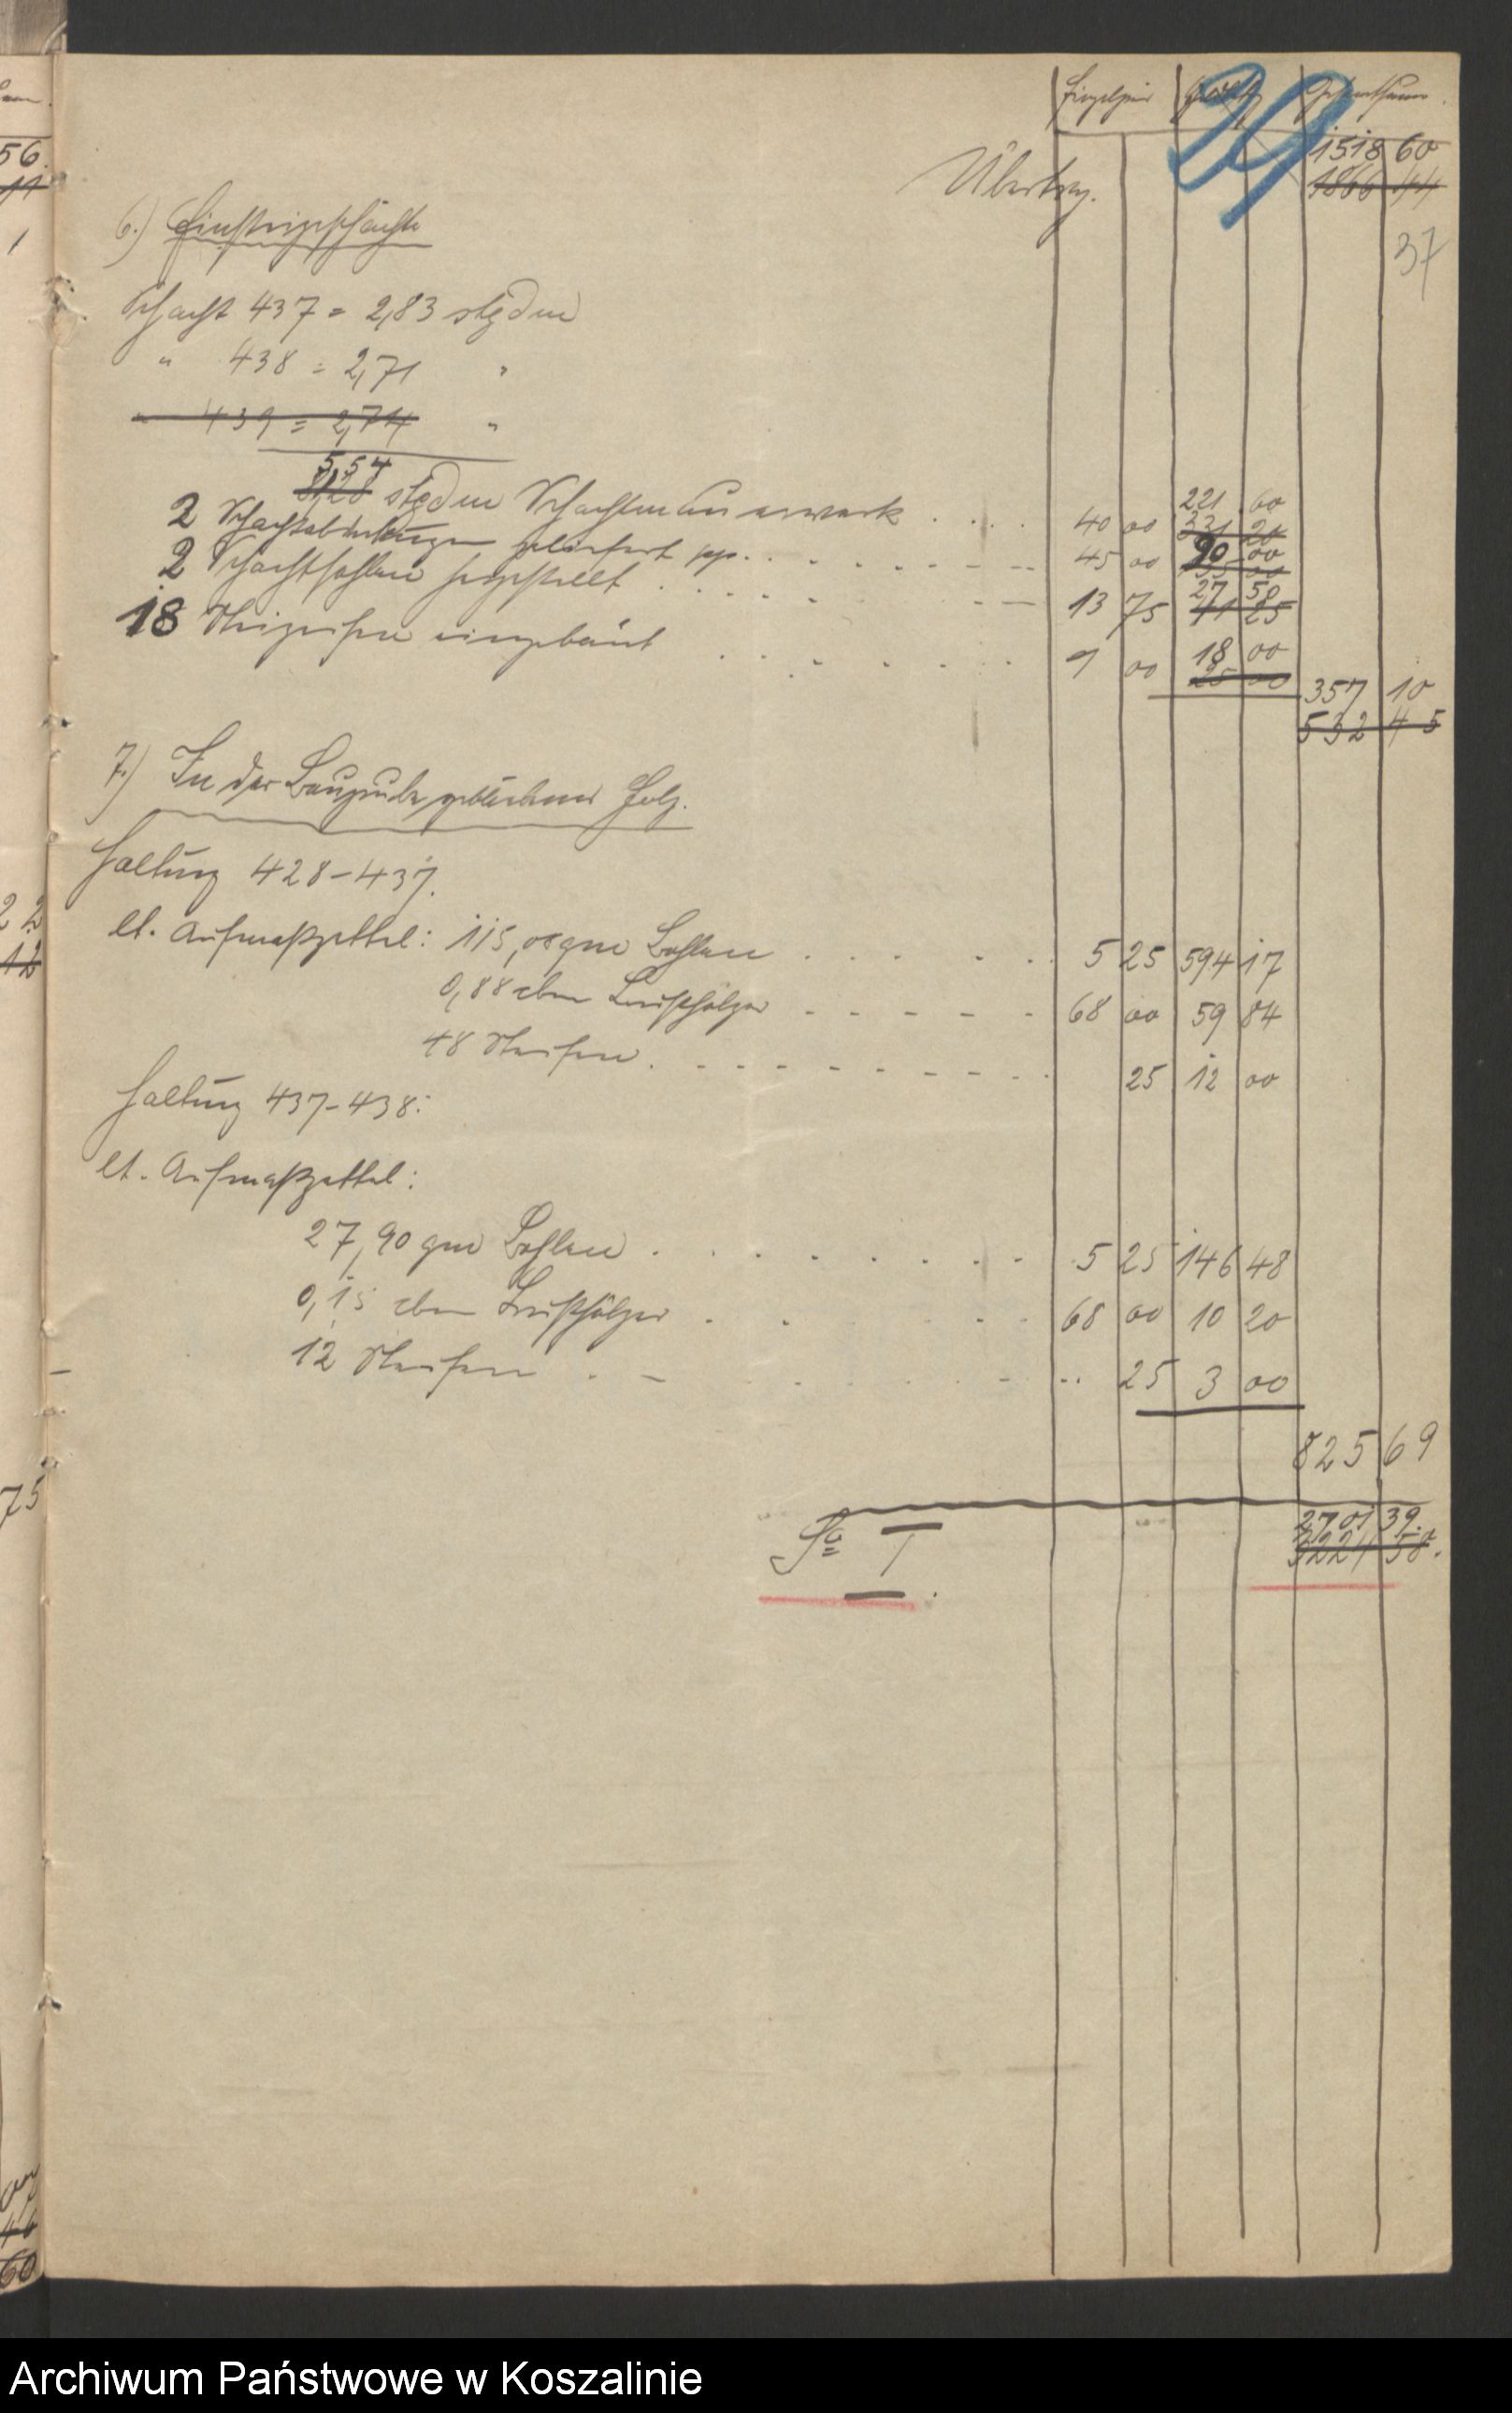 Einzelpreis Gesamtsumme.
29
Übertrag. 1518 60
1866 44
37
6.) Einsteigeschächte
Schacht 437 = 2,83 stgdm
" 438 = 2,71 "
" 439 = 2,74 "
5,54
8,28 stgdm Schachtmauerwerk . . . . 40 00 221 60
331 20
2 Schachtabdeckungen geliefert pp. . . . . . . . 45 00 90 00
135 00
2 Schachtsohlen hergestellt . . . . . . . 13 75 27 50
41 25
18 Steigeisen eingebaut . . . . . . . 1 00 18 00
25 00
357 10
532 45
7.) In der Baugrube gebliebenes Holz.
Haltung 428-437.
lt. Aufmaßzettel: 115,08 qm Bohlen . . . . . . 5 25 594 17
0,88 cbm Brusthölzer . . . . . 68 00 59 84
48 Steifen . . . . . . . . . . . 25 12 00
Haltung 437-438:
lt. Aufmaßzettel:
27,90 qm Bohlen . . . . . . . . 5 25 146 48
0,15 cbm Brusthölzer . . . . . . 68 00 10 20
12 Steifen . - . . . . . . 25 3 00
825 69
Sa I. 2701 39.
3224 58.
56
11
22
12
75
46
60
Archiwum Państwowe w Koszalinie